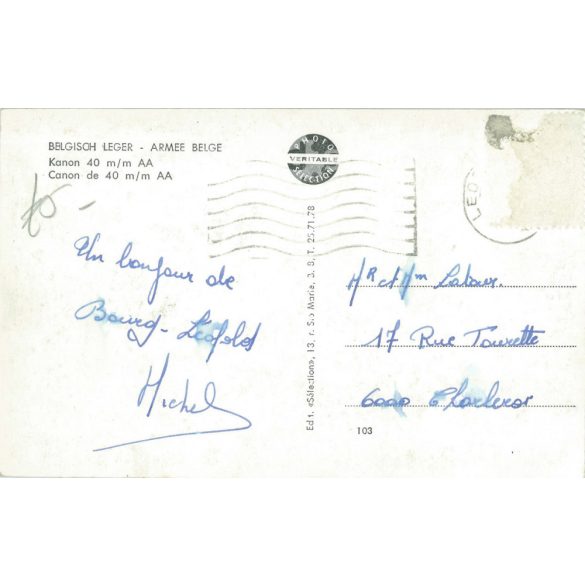 BELGISCH LEGER - ARMEE BELGE
Kanon 40 m/m AA
Canon de 40 m/m AA
PHOTO
VERITABLE
SELECTION
LEO
Un bonjour de
Bourg-Léopold
Michel
Edit. «Sélection», 13, r. Ste Marie, 3. B, T. 25.71.78
Mr et Mm Latour.
17 Rue Tourette
6000 Charleroi
103